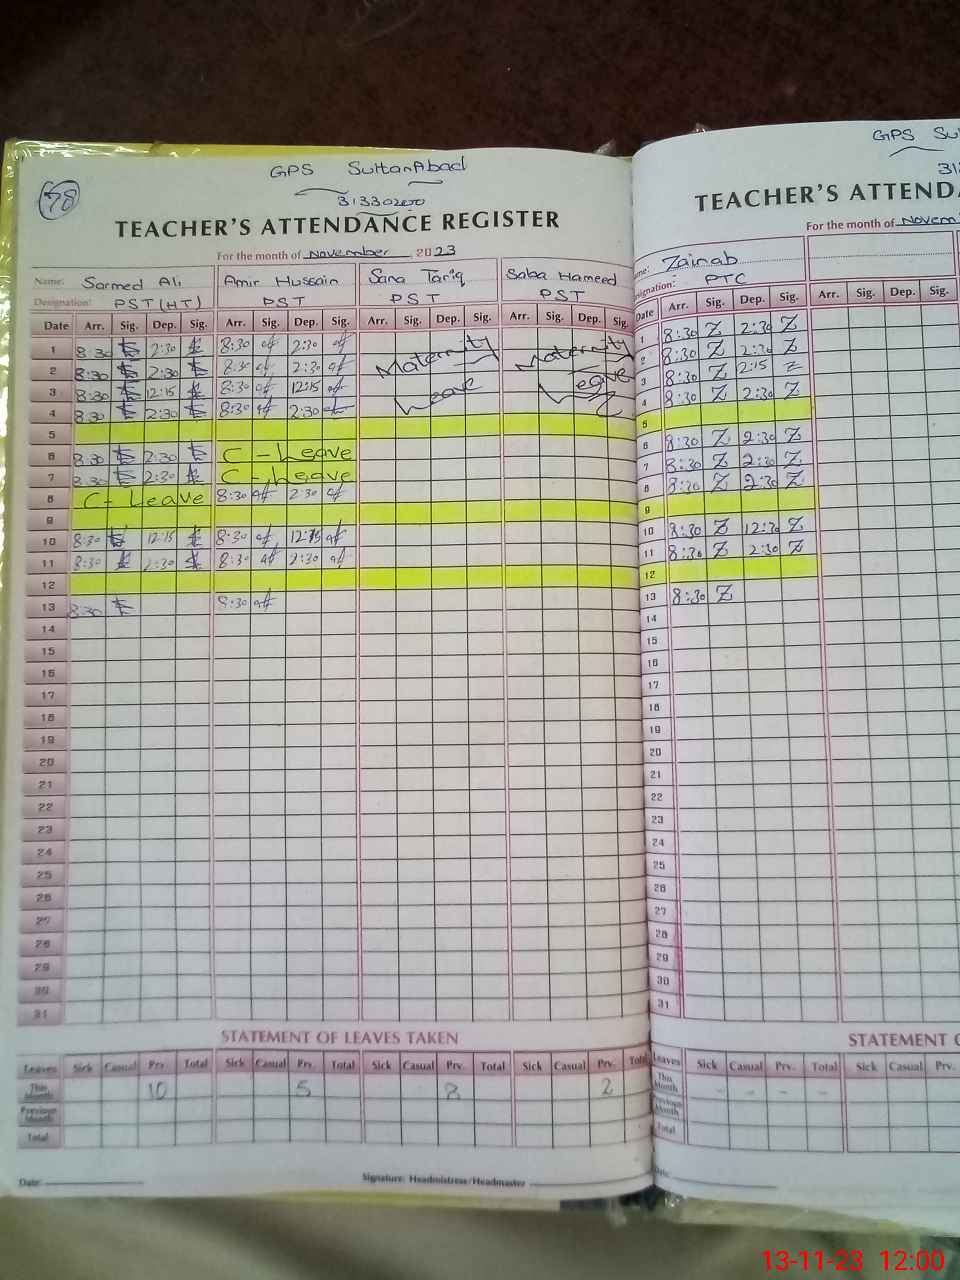 78
GPS SultanAbad
31330200
TEACHER'S ATTENDANCE REGISTER
For the month of November, 2023
Name: Sarmed Ali Amir Hussain Sana Tariq Saba Hameed
Designation: PST (HT) PST PST PST
Date Arr. Sig. Dep. Sig. Arr. Sig. Dep. Sig. Arr. Sig. Dep. Sig. Arr. Sig. Dep. Sig.
1 8:30 2:30 8:30 2:30 Maternity Maternity
2 8:30 2:30 8:30 2:30
3 8:30 12:15 8:30 12:15 Leave Leave
4 8:30 2:30 8:30 2:30
5
6 8:30 2:30 C - Leave
7 8:30 2:30 C - Leave
8 C - Leave 8:30 2:30
9
10 8:30 12:15 8:30 12:15
11 8:30 2:30 8:30 2:30
12
13 8:30 8:30
14
15
16
17
18
19
20
21
22
23
24
25
26
27
28
29
30
31
STATEMENT OF LEAVES TAKEN
Leaves Sick Casual Prv. Total Sick Casual Prv. Total Sick Casual Prv. Total Sick Casual Prv. Total
This Month 10 5 8 2
Previous Month
Total
Date: Signature: Headmistress/Headmaster
GPS Su
31
TEACHER'S ATTENDA
For the month of Novem
Name: Zainab
Designation: PTC
Date Arr. Sig. Dep. Sig. Arr. Sig. Dep. Sig.
1 8:30 Z 2:30 Z
2 8:30 Z 2:30 Z
3 8:30 Z 2:15 Z
4 8:30 Z 2:30 Z
5
6 8:30 Z 2:30 Z
7 8:30 Z 2:30 Z
8 8:30 Z 2:30 Z
9
10 8:30 Z 12:30 Z
11 8:30 Z 2:30 Z
12
13 8:30 Z
14
15
16
17
18
19
20
21
22
23
24
25
26
27
28
29
30
31
STATEMENT O
Leaves Sick Casual Prv. Total Sick Casual Prv.
This Month - - - -
Previous Month
Total
Date:
13-11-23 12:00